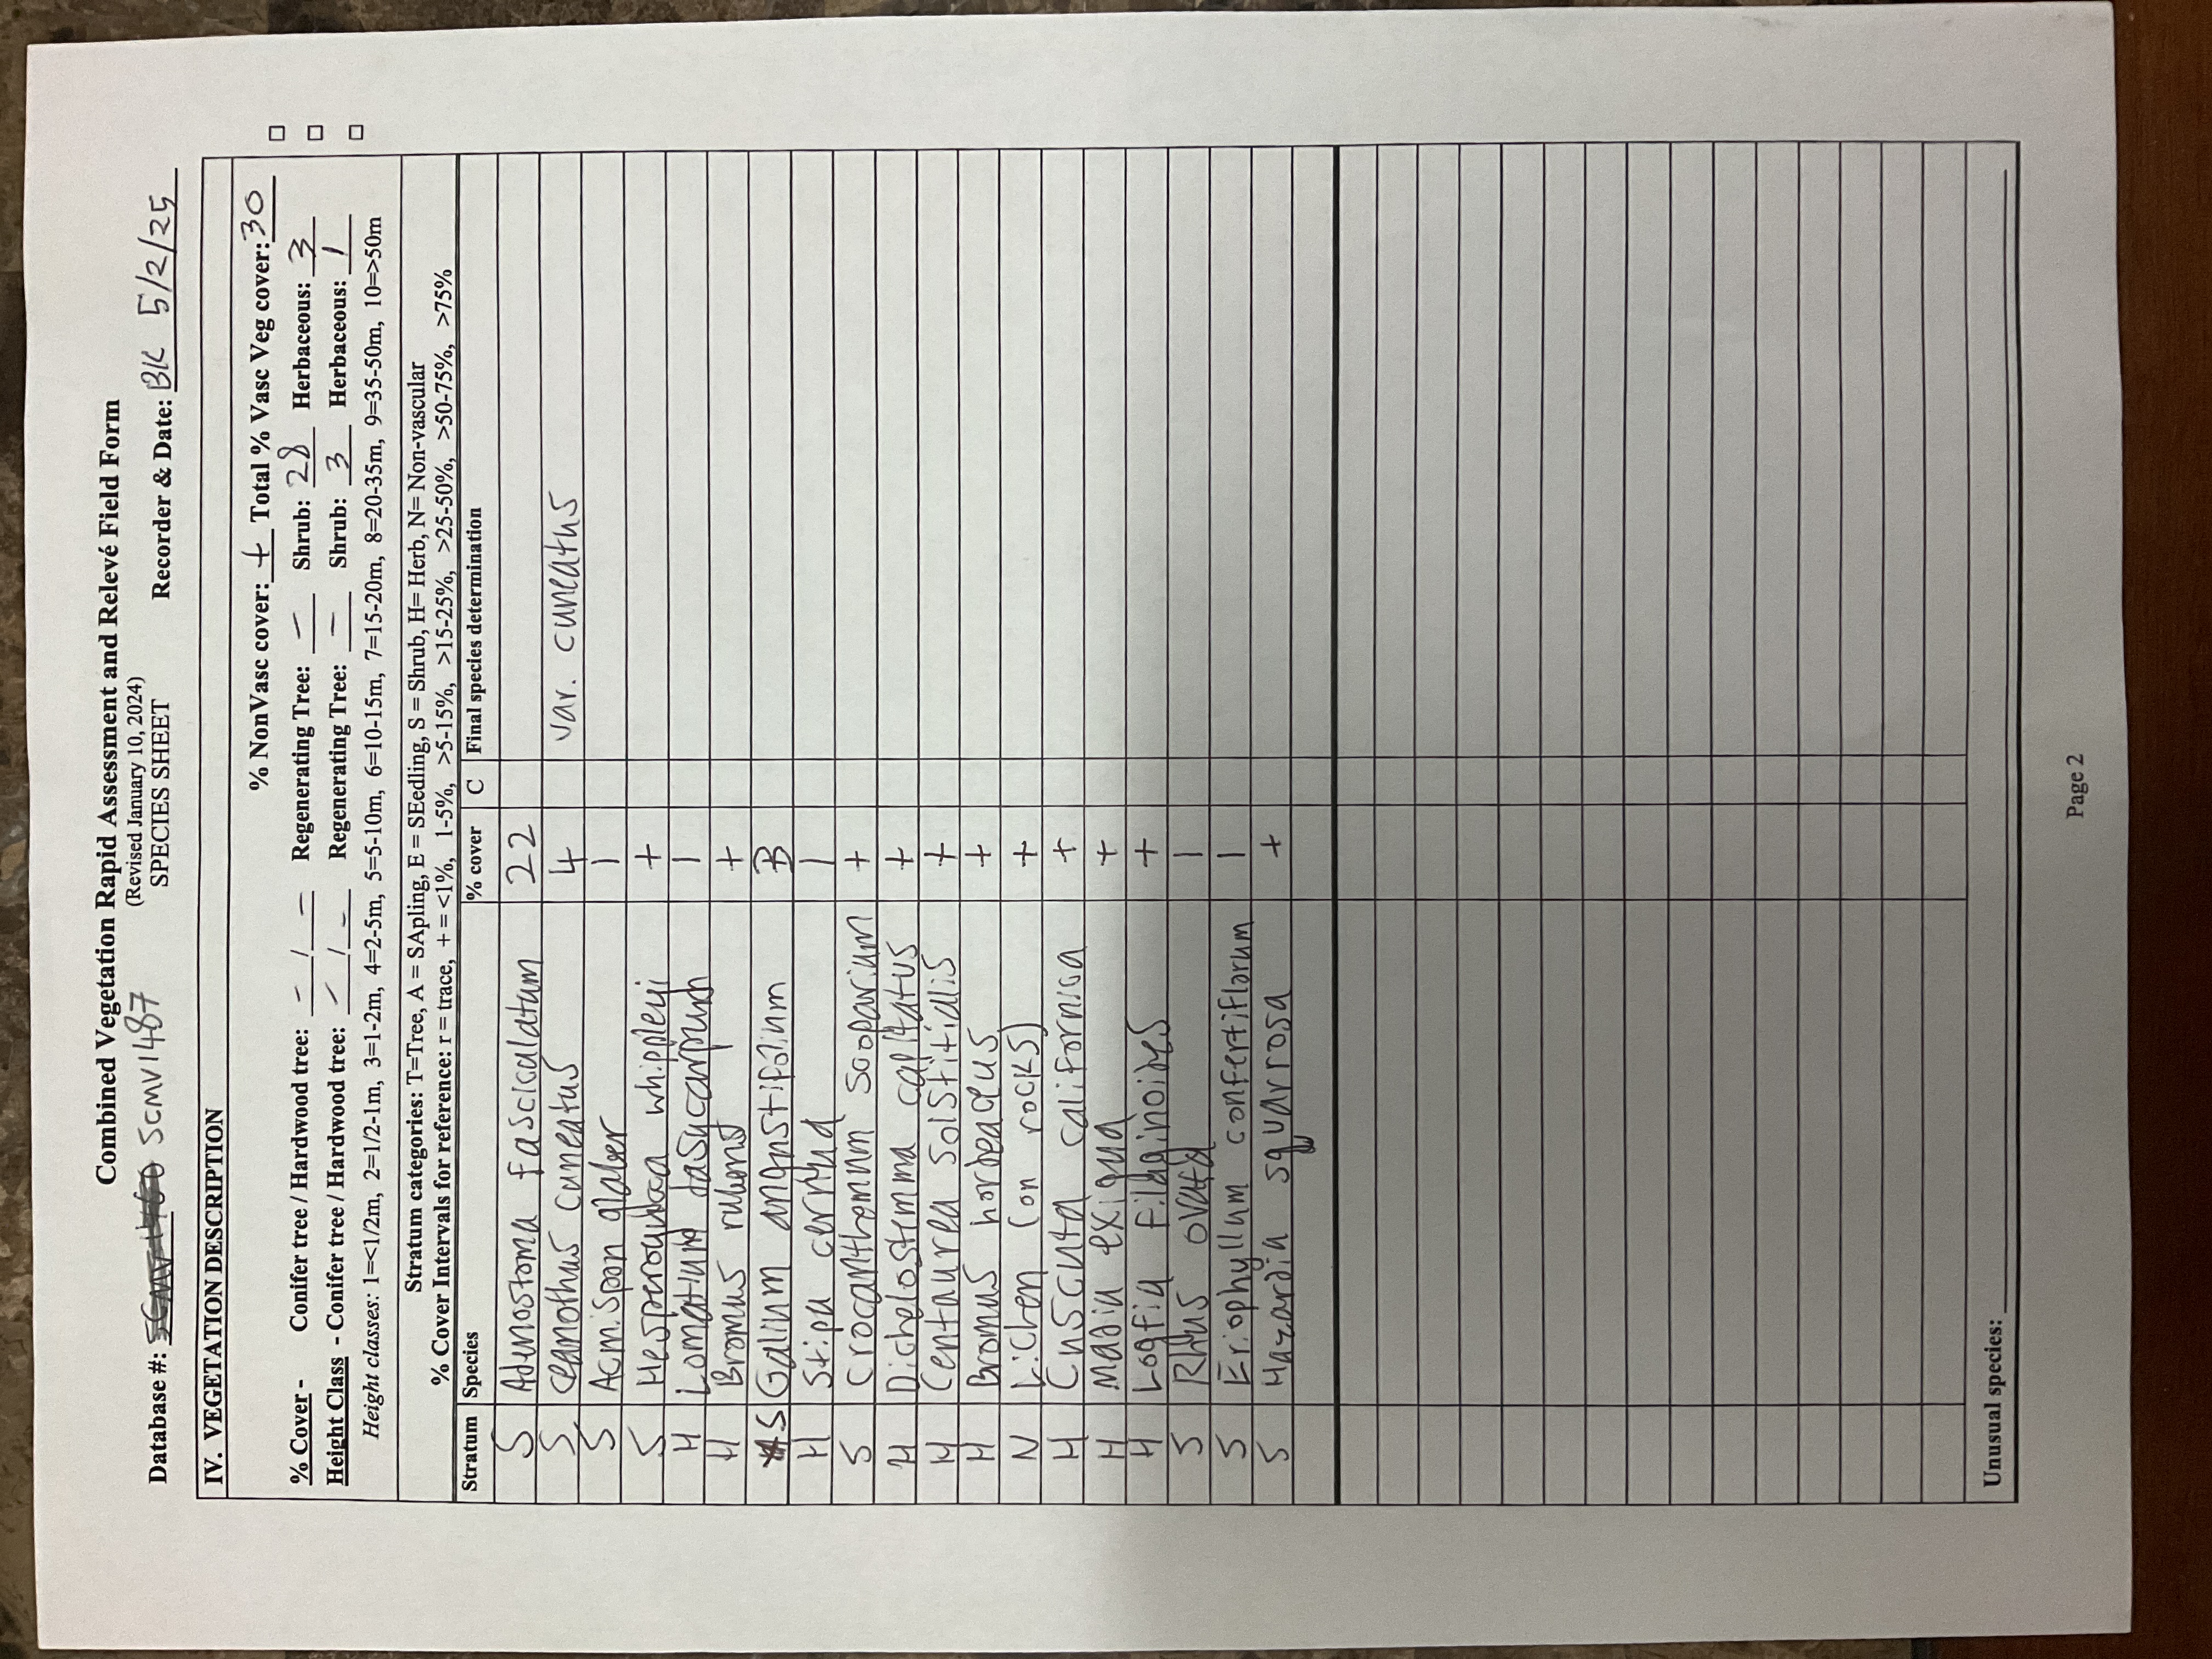 Combined Vegetation Rapid Assessment and Relevé Field Form
(Revised January 10, 2024)
SPECIES SHEET
Database #: SCMV1487 Recorder & Date: BK 5/2/25
IV. VEGETATION DESCRIPTION
% NonVasc cover: + Total % Vasc Veg cover: 30
% Cover - Conifer tree / Hardwood tree: - / - Regenerating Tree: - Shrub: 28 Herbaceous: 3
Height Class - Conifer tree / Hardwood tree: - / - Regenerating Tree: - Shrub: 3 Herbaceous: 1
Height classes: 1=<1/2m, 2=1/2-1m, 3=1-2m, 4=2-5m, 5=5-10m, 6=10-15m, 7=15-20m, 8=20-35m, 9=35-50m, 10=>50m
Stratum categories: T=Tree, A = SApling, E = SEedling, S = Shrub, H= Herb, N= Non-vascular
% Cover Intervals for reference: r = trace, + = <1%, 1-5%, >5-15%, >15-25%, >25-50%, >50-75%, >75%
Stratum Species % cover C Final species determination
S Adenostoma fasciculatum 22
S Ceanothus cuneatus 4 var. cuneatus
S Acmispon glaber 1
S Hesperoyucca whipplei +
H Lomatium dasycarpum 1
H Bromus rubens +
S Galium angustifolium
H Stipa cernua 1
S Crocanthemum scoparium +
H Dichelostemma capitatus +
H Centaurea solstitialis +
H Bromus hordeaceus +
N Lichen (on rocks) +
H Cuscuta californica +
H Madia exigua +
H Logfia filaginoides +
S Rhus ovata 1
S Eriophyllum confertiflorum 1
S Hazardia squarrosa +
Unusual species:
Page 2